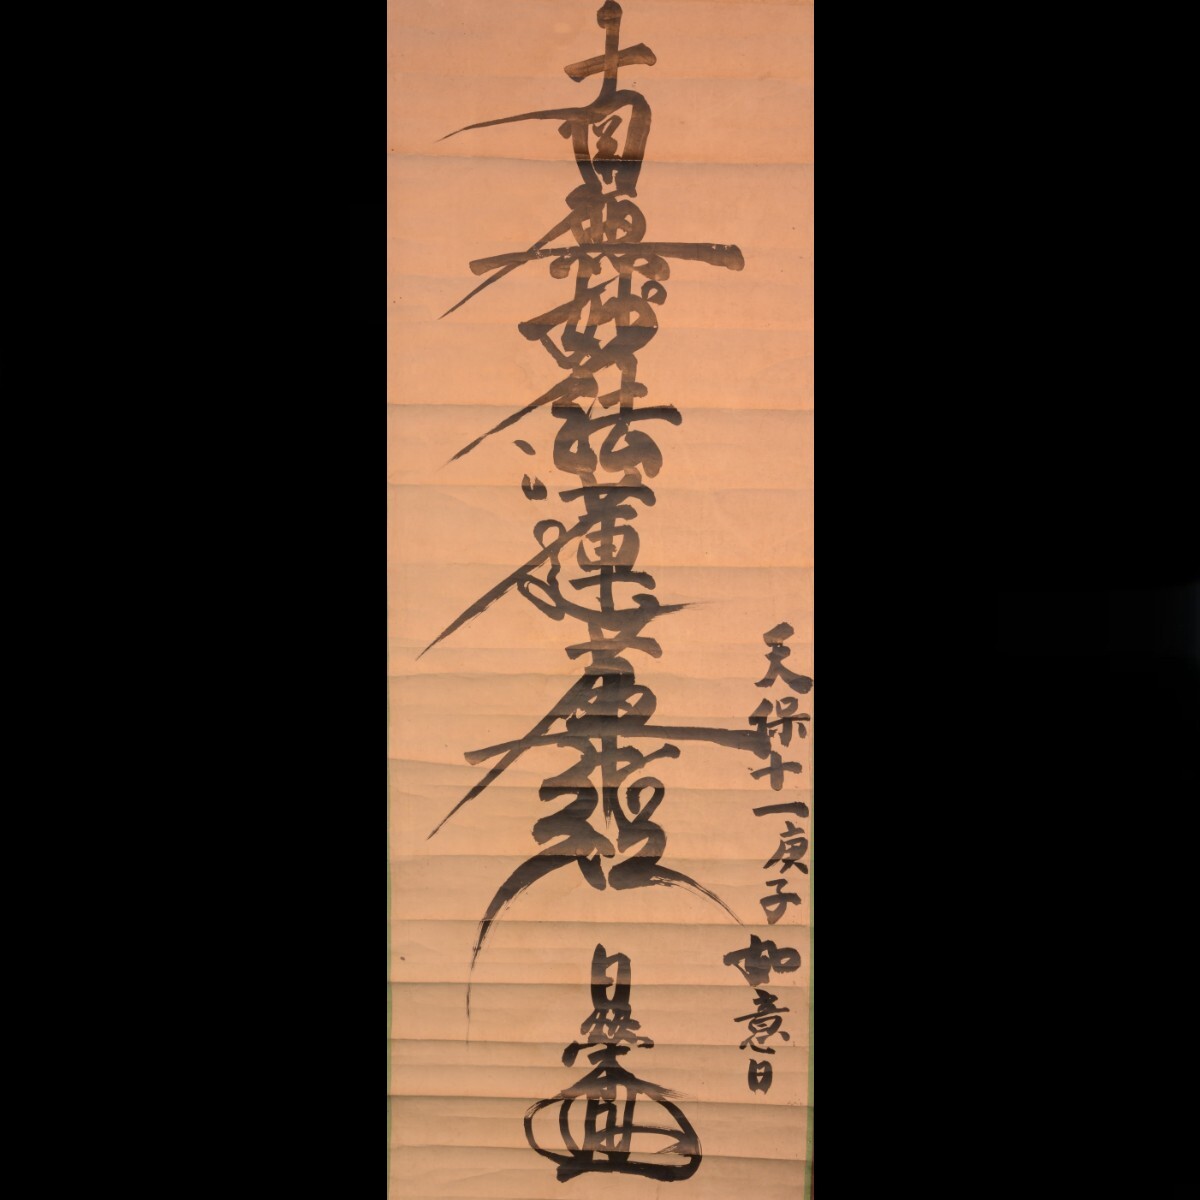 天保十一庚子如意日
南無妙法蓮華経
日榮